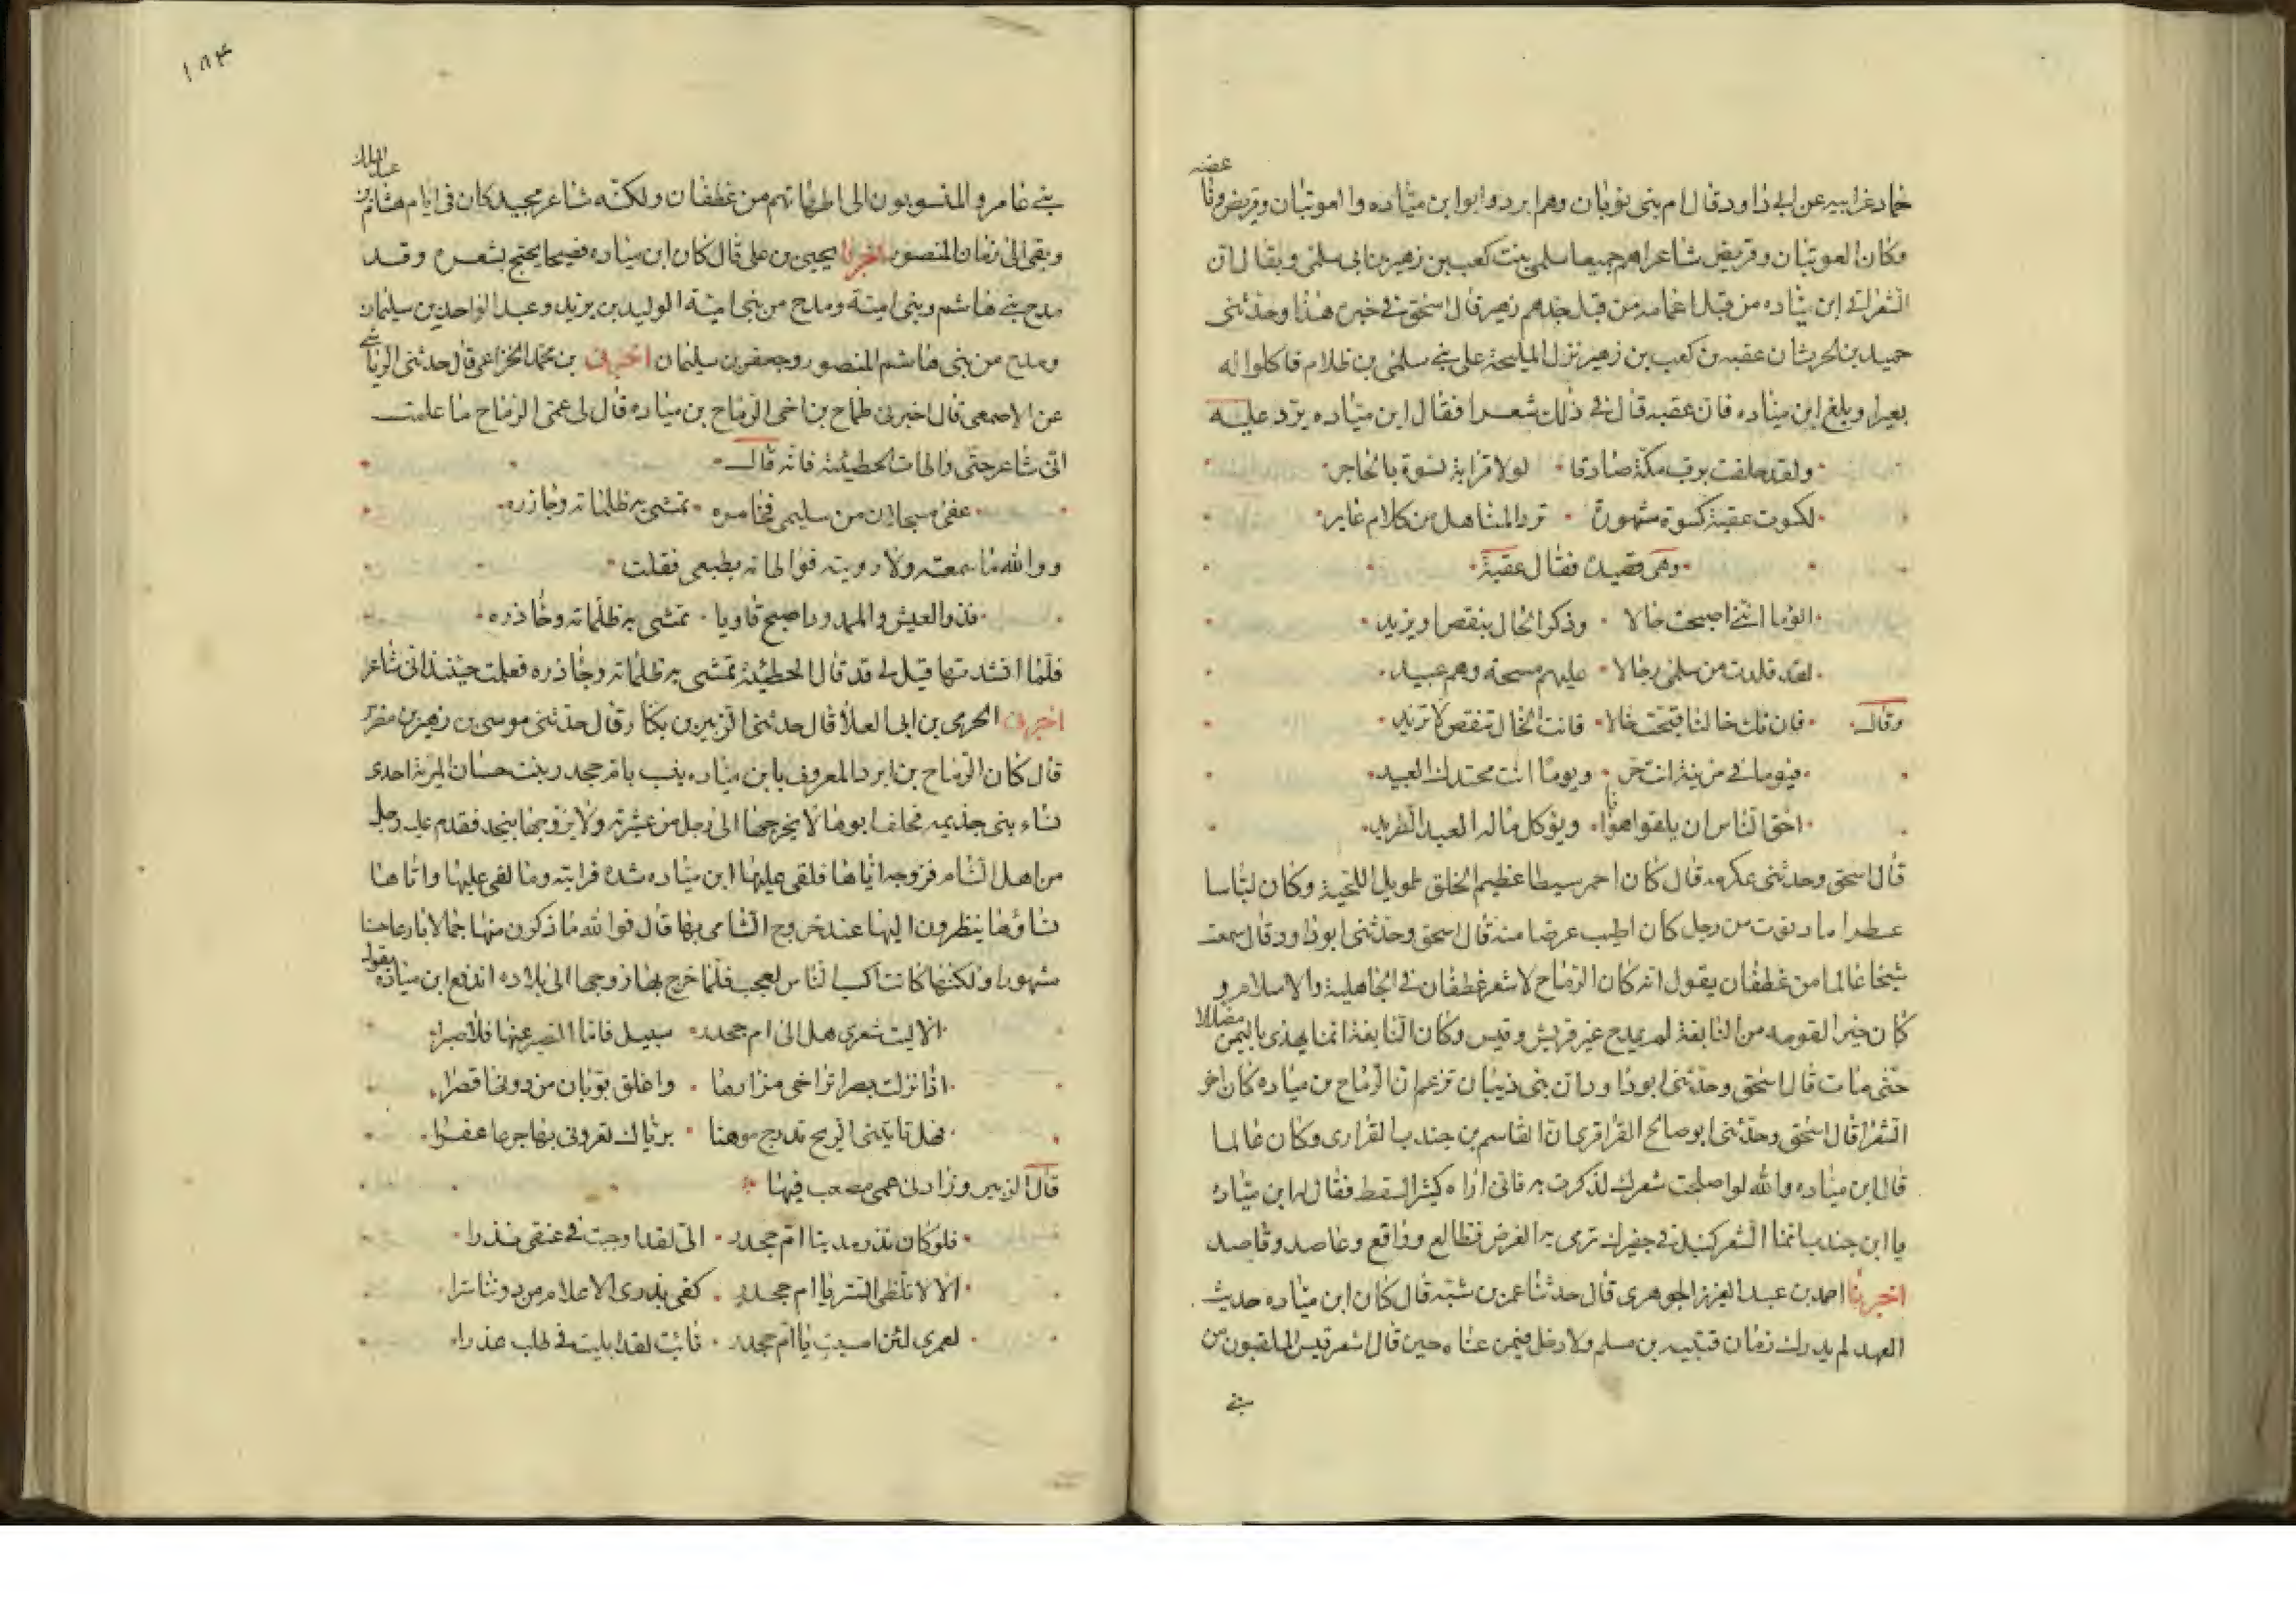 حماد عن ابيه عن ابى داود قال ام بنى ثوبان وهم ابرد وابوا ابن مياده والعوتبان وقريض وناعضه
وكان العوتبان وقريض شاعرا امهم جميعا سلمى بنت كعب بن زهير بن ابى سلمى ويقال ان
الشعر اتى ابن مياده من قبل اعمامه من قبل جدهم زهير قال اسحق فى خبره هذا وحدثنى
حميد بن الحرث ان عقبه بن كعب بن زهير نزل المليحة على بنى سلمى بن ظلام فاكلوا له
بعيرا وبلغ ابن مياده فان عقبه قال فى ذلك شعرا فقال ابن مياده يرد عليه
ولقد حلفت برب مكة صادقا لولا قرابة نسوة بالحاجر
لكسوت عقبة كسوة مشهورة ترد المناهل من كلام غابر
وهى قصيدة فقال عقبة
الوما اننى اصبحت خالا وذكر الخال ينقص او يزيد
لقد قلدت من سلمى رجالا عليهم مسحة وهم عبيد
وقال فان تك خالنا فقبحت خالا فانت الخال تنقص لا تزيد
فيوما فى مزينة انت حر ويوما انت محتدك العبيد
احق الناس ان يلقى هوانا ويوكل ماله العبد الطريد
قال اسحق وحدثنى عكرمه قال كان احمر سبطا عظيم الخلق طويل اللحية وكان لباسا
عطرا ما دنوت من رجل كان اطيب عرضا منه قال اسحق وحدثنى ابو داود قال سمعت
شيخا عالما من غطفان يقول انه كان الرماح لاشعر غطفان فى الجاهلية والاسلام و
كان خيرا لقومه من النابغة لم يمدح غير قريش وقيس وكان النابغة انما يهذى باليمن مضللا
حتى مات قال اسحق وحدثنى ابو داود ان بنى ذبيان تزعم ان الرماح بن مياده كان اخر
الشعرا قال اسحق وحدثنى ابو صالح الفزارى ان القاسم بن جندب الفزارى وكان عالما
قال ابن مياده والله لو اصلحت شعرك لذكرت به فانى اراه كثير السقط فقال له ابن مياده
يا ابن جندب انما الشعر كنبل فى جفيرك ترمى به الغرض فطالع وواقع وعاصد وقاصد
اخبرنا احمد بن عبد العزيز الجوهرى قال حدثنا عمر بن شبة قال كان ابن مياده حديث
العهد لم يدرك زمان قتيبه بن مسلم ولا دخل فيمن عناه حين قال اشعر قيس الملقبون من
بنى
١٨٤
بنى عامر والمنسوبون الى امهاتهم من غطفان ولكنه شاعر مجيد كان فى ايام هشام بن عبد الملك
وبقى الى زمان المنصور اخبرنا يحيى بن على قال كان ابن مياده فصيحا يحتج بشعره وقد
مدح بنى هاشم وبنى امية ومدح من بنى امية الوليد بن يزيد وعبد الواحد بن سليمان
ومدح من بنى هاشم المنصور وجعفر بن سليمان اخبرنى بن محمد الخزاعى قال حدثنى الرياشى
عن الاصمعى قال اخبرنى طماح بن اخى الرماح بن مياده قال لى عمى الرماح ما علمت
انى شاعر حتى واطات الحطيئة فانه قال
عفى مسحلان من سليمى فحامره تمشى به ظلمانه وجاذره
ووالله ما سمعته ولا رويته فواطاته بطبعى فقلت
فذو العيش والممدور اصبح قاويا تمشى به ظلمانه وجاذره
فلما انشدتها قيل لى قد قال الحطيئة تمشى به ظلمانه وجاذره فعلمت حينئذ انى شاعر
اخبرنى الحرمى بن ابى العلا قال حدثنى الزبير بن بكار وقال حدثنى موسى بن زهير بن مضرس
قال كان الرماح بن ابرد المعروف بابن مياده ينسب بام جحدر بنت حسان المرية احدى
نساء بنى جذيمه فحلف ابوها لا يخرجها الى رجل من عشيرته ولا يزوجها بنجد فقدم عليه رجل
من اهل الشام فزوجه اياها فلقى عليها ابن مياده شدة فرايته وما لقى عليها واتاها
نساؤها ينظرون اليها عند خروج الشامى بها قال فوالله ما ذكرن منها جمالا بارعا حسنا
مشهورا ولكنها كانت اكسب الناس لعجب فلما خرج بها زوجها الى بلاده اندفع ابن مياده يقول
الا ليت شعرى هل الى ام جحدر سبيل فاما الصبر عنها فلا صبرا
اذا نزلت بصرى تراخى مزارها واغلق بوابان من دونها قصرا
فهل تاتينى الريح تدرج موهنا برياك تعرونى بها جرعا عفرا
قال الزبير وزادنى عمى مصعب فيها
فلو كان نذر مدنيا ام جحدر الى لقد اوجبت فى عنقى نذرا
الا لا تلطى الستر يا ام جحدر كفى بذرى الاعلام من دوننا سترا
لعمرى لئن امسيت يا ام جحدر نايت لقد ابليت فى طلب عذرا